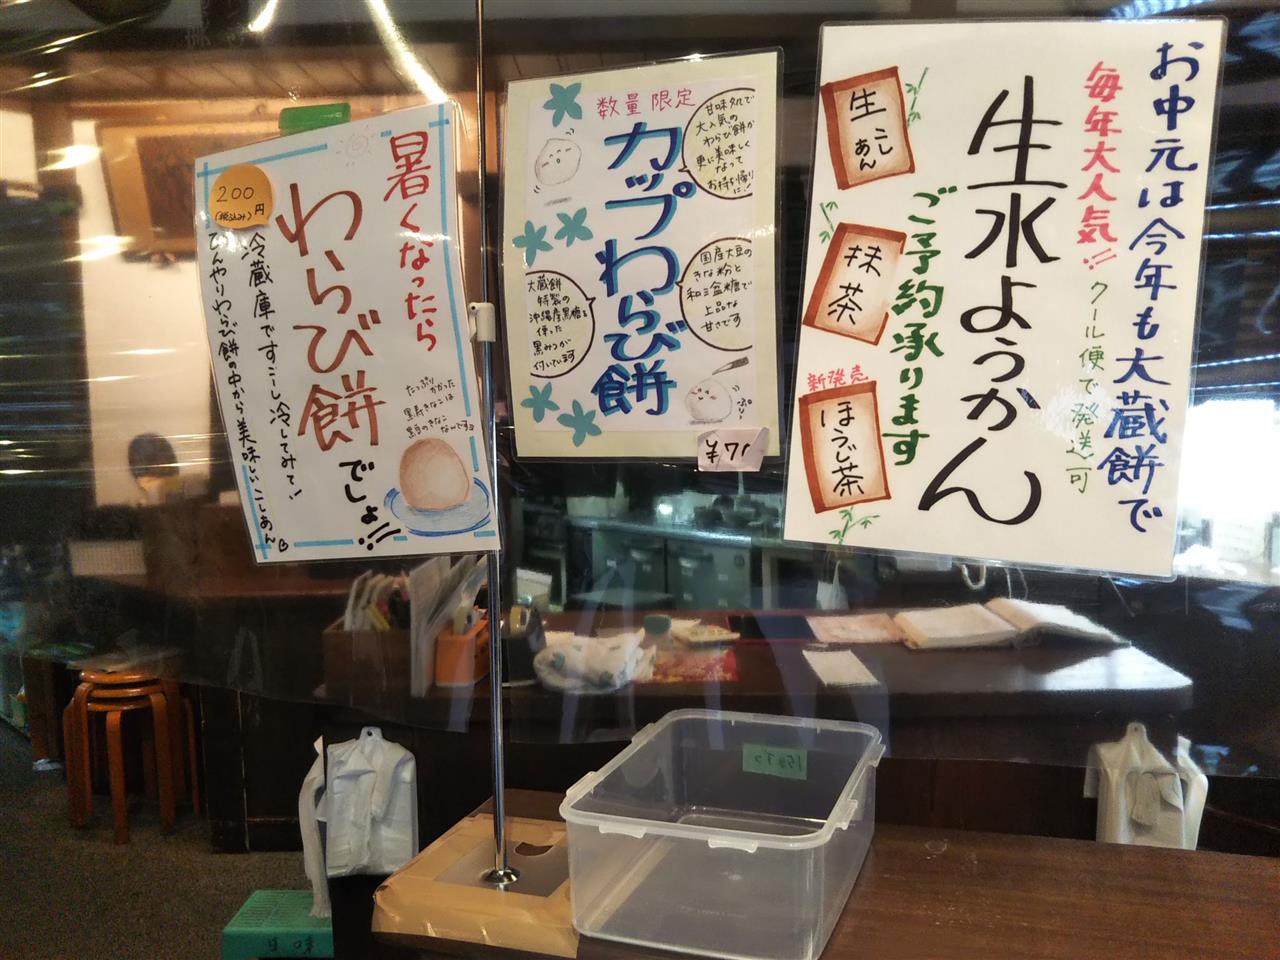 暑くなったら
わらび餅
でしょ!!
200
(税込み)円
冷蔵庫ですこーし冷してみて!
ひんやりわらび餅の中から美味しいこしあん♡
たっぷりかかった
きなこは
黒豆のきなこなんです
数量限定
カップわらび餅
甘味処で
大人気の
わらび餅が
更に美味しく
なって
お持ち帰り
に!
国産大豆の
きな粉と
和三盆糖で
上品な
甘さです
大蔵餅
特製の
沖縄産黒糖を
使った
黒みつが
付いています
お中元は今年も大蔵餅で
毎年大人気!!
クール便で発送可
生水ようかん
ご予約承ります
生
こし
あん
抹茶
新発売
ほうじ茶
甘味